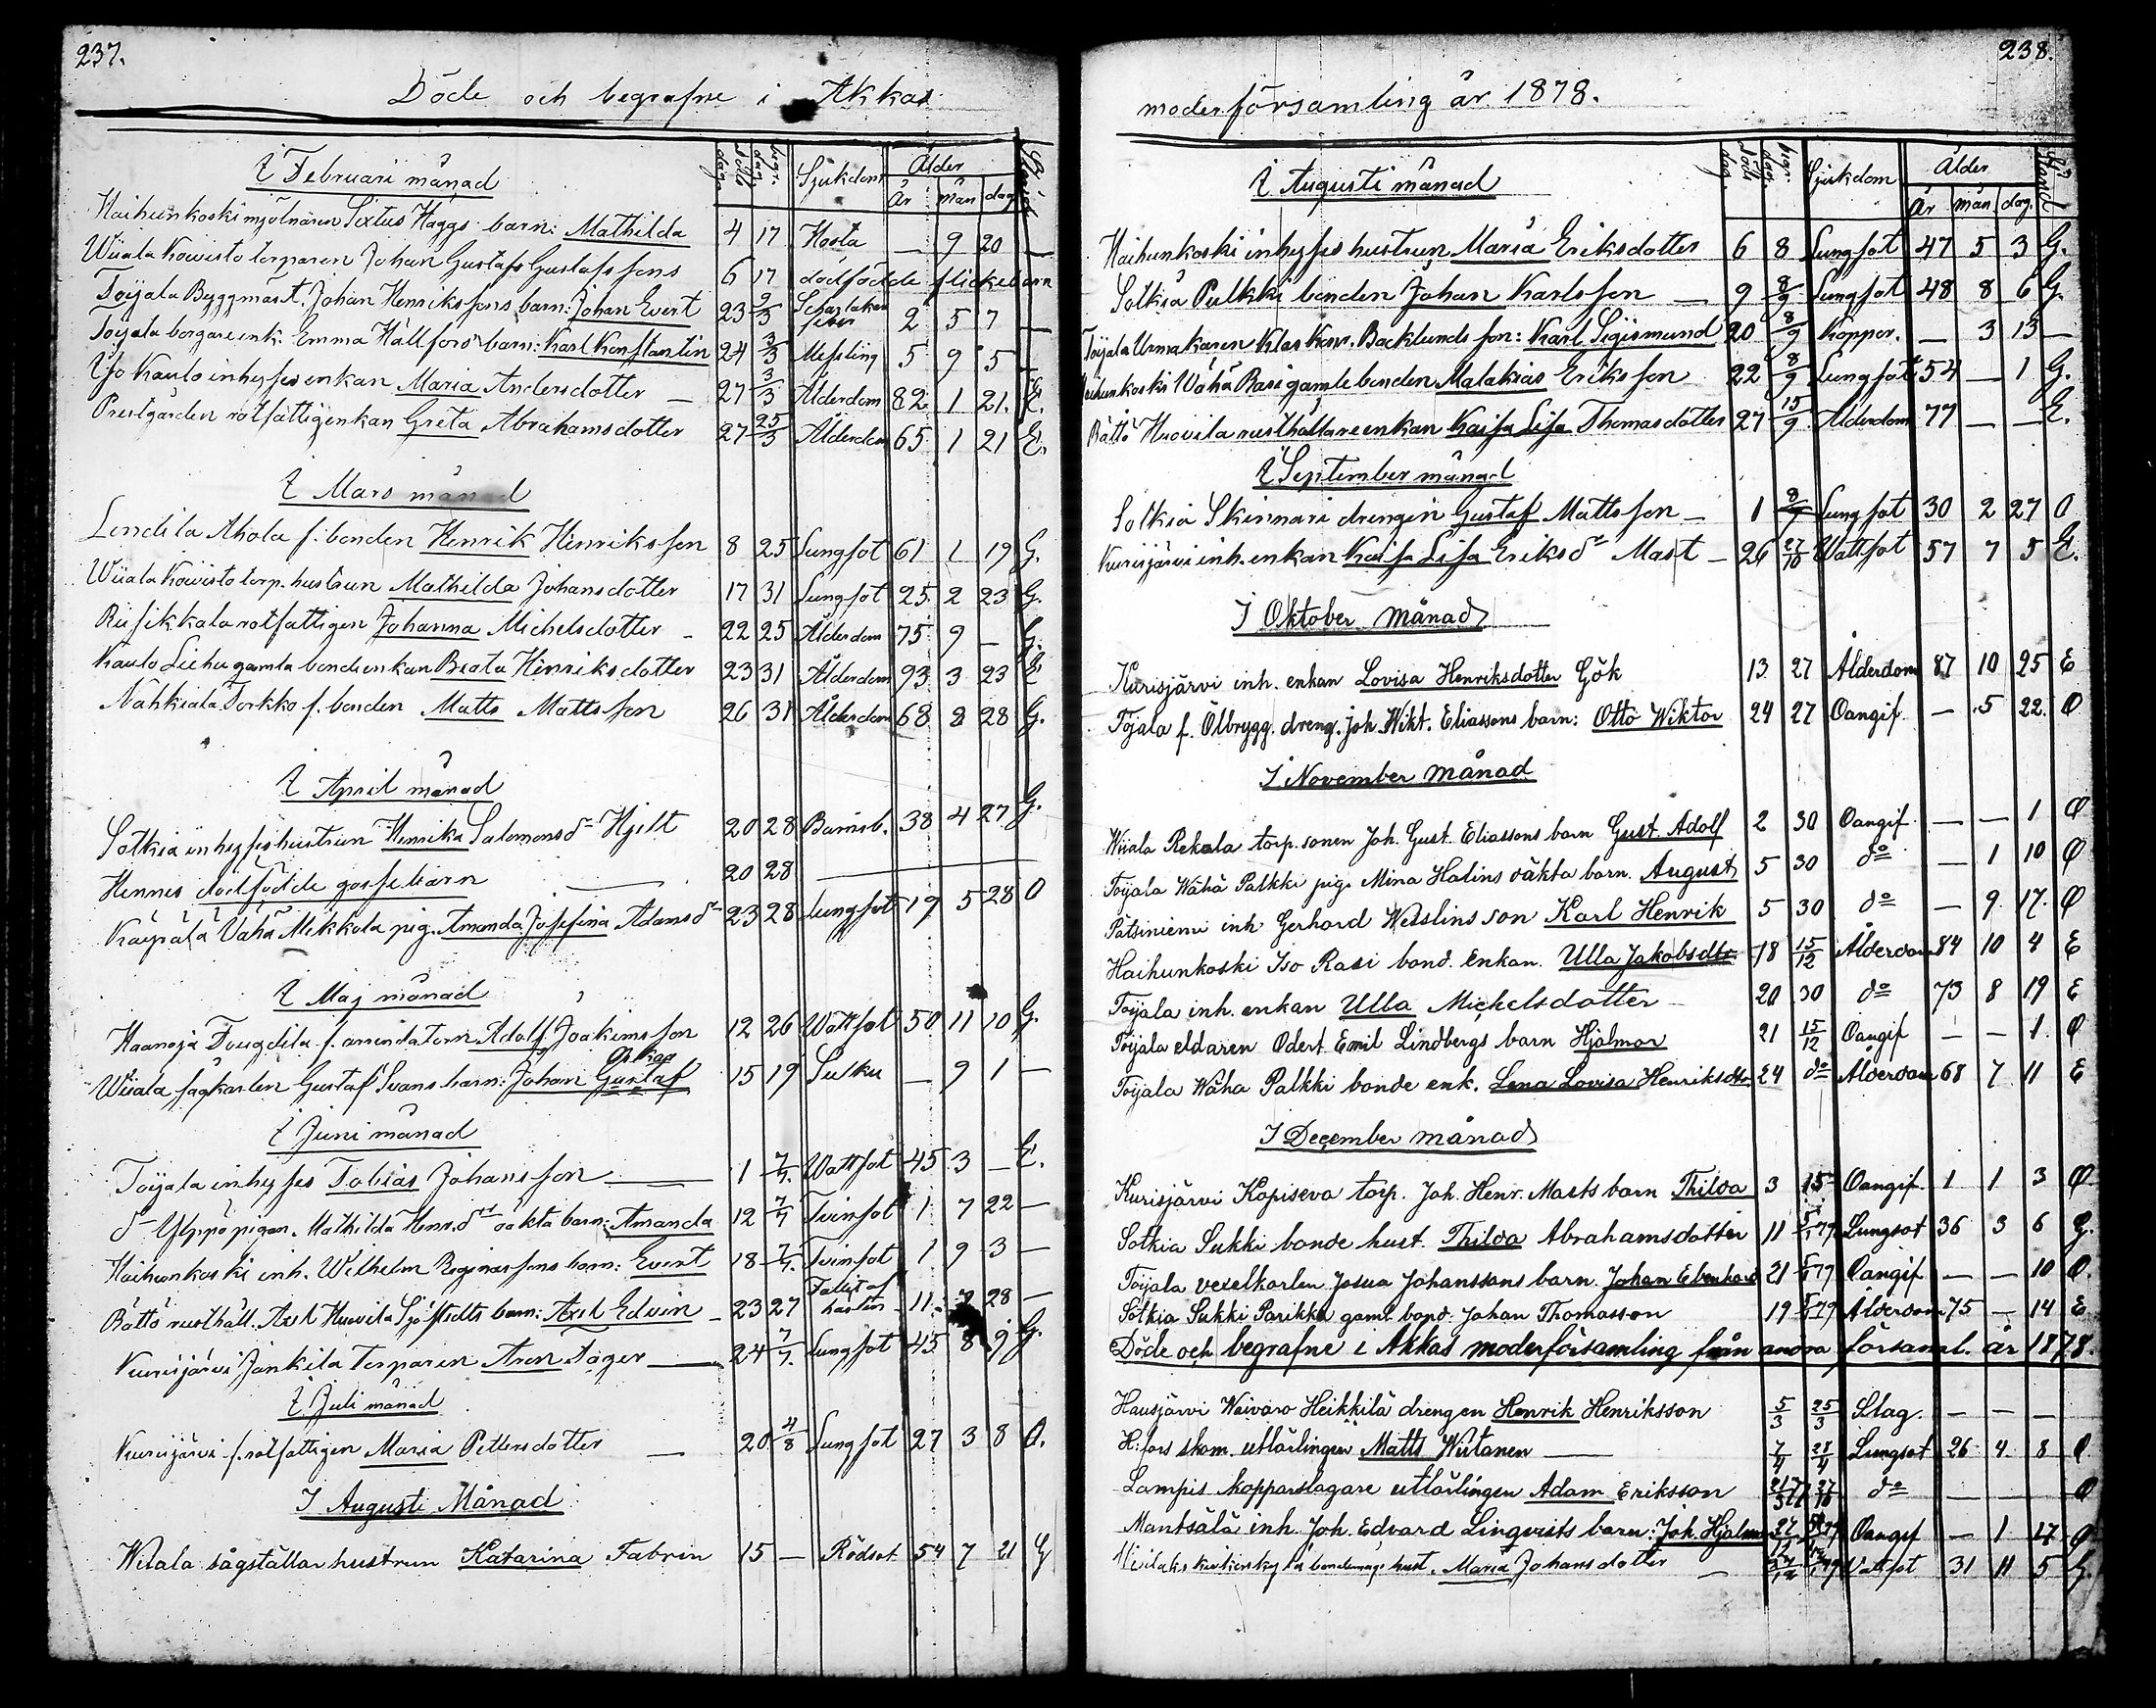 237.
Döde och begrafne i Akkas
döds dag. begr. dag Sjukdom Ålder Stånd
År mån dag
I Februari månad
Haihunkoski mjölnaren Sixtus Häggs barn: Mathilda 4 17 Hosta — 9 20 —
Wiiala Kowisto torparen Johan Gustafs Gustafssons 6 17 dödfödde flickebarn
Toijala Byggmäst. Johan Henrikssons barn: Johan Evert 23 9/3 Scharlakan feber 2 5 7 —
Toijala borgareenk. Emma Hällfors barn: Karl Konstantin 24 3/3 Messling 5 9 5 —
Iso Kaulo inhyses enkan Maria Andersdotter — 27 3/3 Ålderdom 82 1 21. E.
Prestgården rotfattigenkan Greta Abrahamsdotter 27 25/3 Ålderdom 65 1 21 E.
I Mars månad
Londila Ahola f. bonden Henrik Henriksson 8 25 Lungsot 61 1 19 G.
Wiiala Kowisto torp. hustrun Mathilda Johansdotter 17 31 Lungsot 25 2 23 G.
Riisikkala rotfattigen Johanna Michelsdotter - 22 25 Ålderdom 75 9 — G.
Kaulo Liehu gamla bondenkan Beata Henriksdotter 23 31 Ålderdom 93 3 23 E
Nahkiala Torkko f. bonden Matts Mattsson 26 31 Ålderdom 68 8 28 G.
I April månad
Sotkia inhyses hustrun Henrika Salomons dr Hjelt 20 28 Barnsb. 38 4 27 G.
Hennes dödfödde gossebarn — 20 28 —
Käyrälä Vähä Mikkola pig. Amanda Josefina Adams dr 23 28 Lungsot 19 5 28 O
I Maj månad
Haanoja Fougdila f. arrendatorn Adolf Joakimsson 12 26 Wattsot 50 11 10 G.
Wiiala sågkarlen Gustaf Svans barn: Johan Gustaf Oskar 15 19 Sulku — 9 1 —
I Juni månad
Toijala inhyses Tobias Johansson — 1 7/7. Wattsot 45 3 — E.
do Ylppö pigan. Mathilda Henr. dr oäkta barn: Amanda 12 7/7 Tvinsot 1 7 22 —
Haihunkoski inh. Wilhelm Reginassons barn: Evert 18 7/7. Tvinsot 1 9 3 —
Rättö rusthåll. Axel Huovila Sjöstedts barn: Axel Edvin 23 27 Fallit af hästen 11 7 28 —
Kurisjärvi Jankila torparen Aron Jäger — 24 7/7. Lungsot 45 8 9 G.
I Juli månad
Kurisjärvi f. rotfattigen Maria Pettersdotter — 20 4/8 Lungsot 27 3 8 O.
I Augusti Månad
Wiiala sågställar hustrun Katarina Fabrin 15 — Rödsot 54 7 21 G
238.
moderförsamling år 1878.
döds dag begr. dag Sjukdom Ålder Stånd
År mån dag.
I Augusti månad
Haihunkoski inhyses hustrun Maria Eriksdotter 6 8 Lungsot 47 5 3 G.
Sotkia Pulkki bonden Johan Karlsson — 9 8/9 Lungsot 48 8 6 G.
Toijala Urmakaren Klas Konr. Backlunds son: Karl Sigismund 20 8/9 Koppor. — 3 13 —
Haihunkoski Wähä Rasi gamle bonden Malakias Eriksson 22 8/9 Lungsot 54 — 1 G.
Rättö Huovila rusthållareenkan Kaisa Lisa Thomasdotter 27 15/9 Ålderdom 77 — — E.
I September månad
Sotkia Skinnari drengen Gustaf Mattsson — 1 8/9 Lungsot 30 2 27 O
Kurisjärvi inh. enkan Kaisa Lisa Eriks dr Mast — 26 27/10 Wattsot 57 7 5 E.
I Oktober Månad
Kurisjärvi inh. enkan Lovisa Henriksdotter Gök 13 27 Ålderdom 87 10 25 E
Toijala f. Ölbrygg. dreng. Joh. Wikt. Eliassons barn: Otto Wiktor 24 27 Oangif. — 5 22. O
I November Månad
Wiiala Rekola torp. sonen Joh. Gust. Eliassons barn Gust. Adolf 2 30 Oangif. — — 1 O
Toijala Wähä Palkki pig. Mina Halins oäkta barn. August 5 30 do — 1 10 O
Pätsiniemi inh Gerhard Wesslins son Karl Henrik 5 30 do — 9 17. O
Haihunkoski Iso Rasi bond. Enkan. Ulla Jakobsdtr 18 15/12 Ålderdom 84 10 4 E
Toijala inh. enkan Ulla Michelsdotter — 20 30 do 73 8 19 E
Toijala eldaren Odert Emil Lindbergs barn Hjalmar 21 15/12 Oangif — — 1 O
Toijala Wähä Palkki bonde enk. Lena Lovisa Henriksdtr 24 do Ålderdom 68 7 11 E
I December Månad
Kurisjärvi Kopiseva torp. Joh. Henr. Masts barn Thilda 3 15 Oangif 1 1 3 O
Sotkia Sukki bonde hust. Thilda Abrahamsdotter 11 5/1 79 Lungsot 36 3 6 G.
Toijala vexelkarlen Josua Johanssons barn. Johan Ebenhard 21 5/1 79 Oangif — — 10 O.
Sotkia Sukki Parikka gaml. bond. Johan Thomasson 19 5/1 79 Ålderdom 75 — 14 E
Döde och begrafne i Akkas moderförsamling från andra församl. år 1878.
Hausjärvi Waivaro Heikkilä drengen Henrik Henriksson 5/3 25/3 Slag. — — —
H:fors skom. utlärlingen Matts Wiitanen — 7/4 28/4 Lungsot 26 4 8 O
Lampis kopparslagare utlärlingen Adam Eriksson 27/10 do — — O
Mäntsälä inh. Joh. Edvard Lingvists barn: Joh. Hjalmar Oangif — 1 17 O
hust. Maria Johansdotter — Vattsot 31 11 5 G.